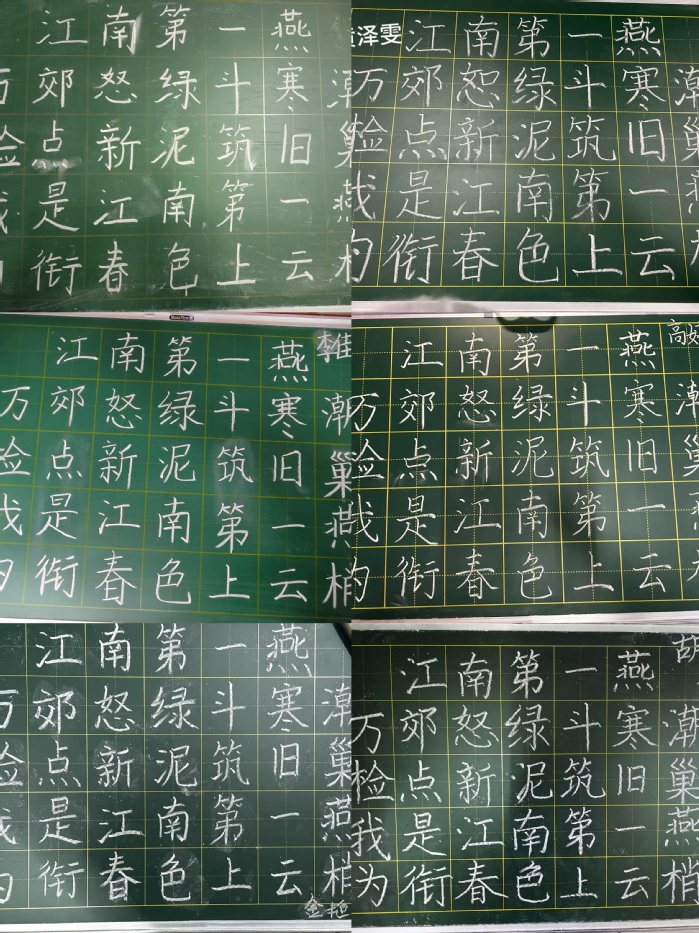 江南第一燕
郊怒绿斗寒
点新泥筑旧巢
是江南第一燕
衔春色上云
泽雯江南第一燕
万郊恕绿斗寒潮
检点新泥筑旧巢
我是江南第一
为衔春色上云
江南第一燕
万郊怒绿斗寒潮
检点新泥筑旧巢
我是江南第一燕
衔春色上云梢
江南第一燕
万郊怒绿斗寒潮
检点新泥筑旧巢
我是江南第一
为衔春色上云
江南第一燕
万郊怒绿斗寒潮
检点新泥筑旧巢
是江南第一燕
为衔春色上云梢
江南第一燕 胡
万郊怒绿斗寒潮
检点新泥筑旧巢
我是江南第一燕
为衔春色上云梢